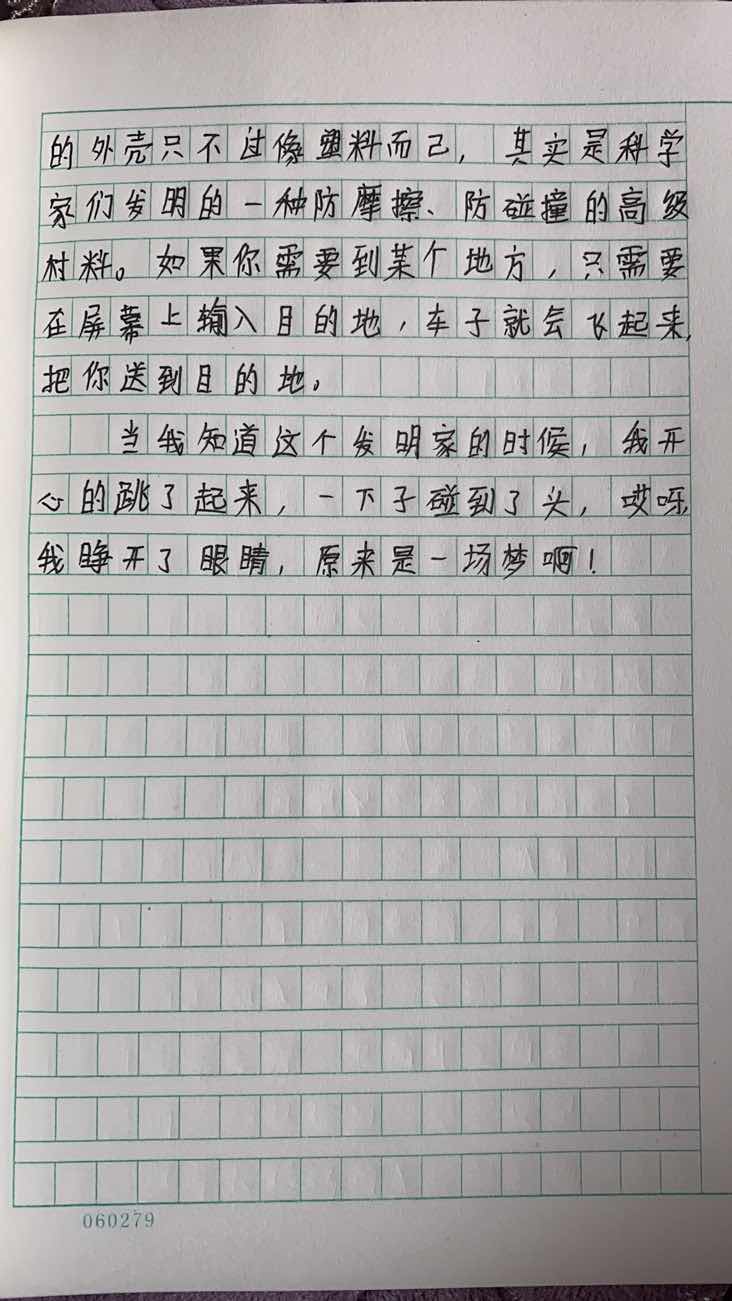 的外壳只不过像塑料而己，其实是科学
家们发明的一种防摩擦、防碰撞的高级
材料。如果你需要到某个地方，只需要
在屏幕上输入目的地，车子就会飞起来，
把你送到目的地。
当我知道这个发明家的时候，我开
心的跳了起来，一下子碰到了头，哎呀，
我睁开了眼睛，原来是一场梦啊！
060279